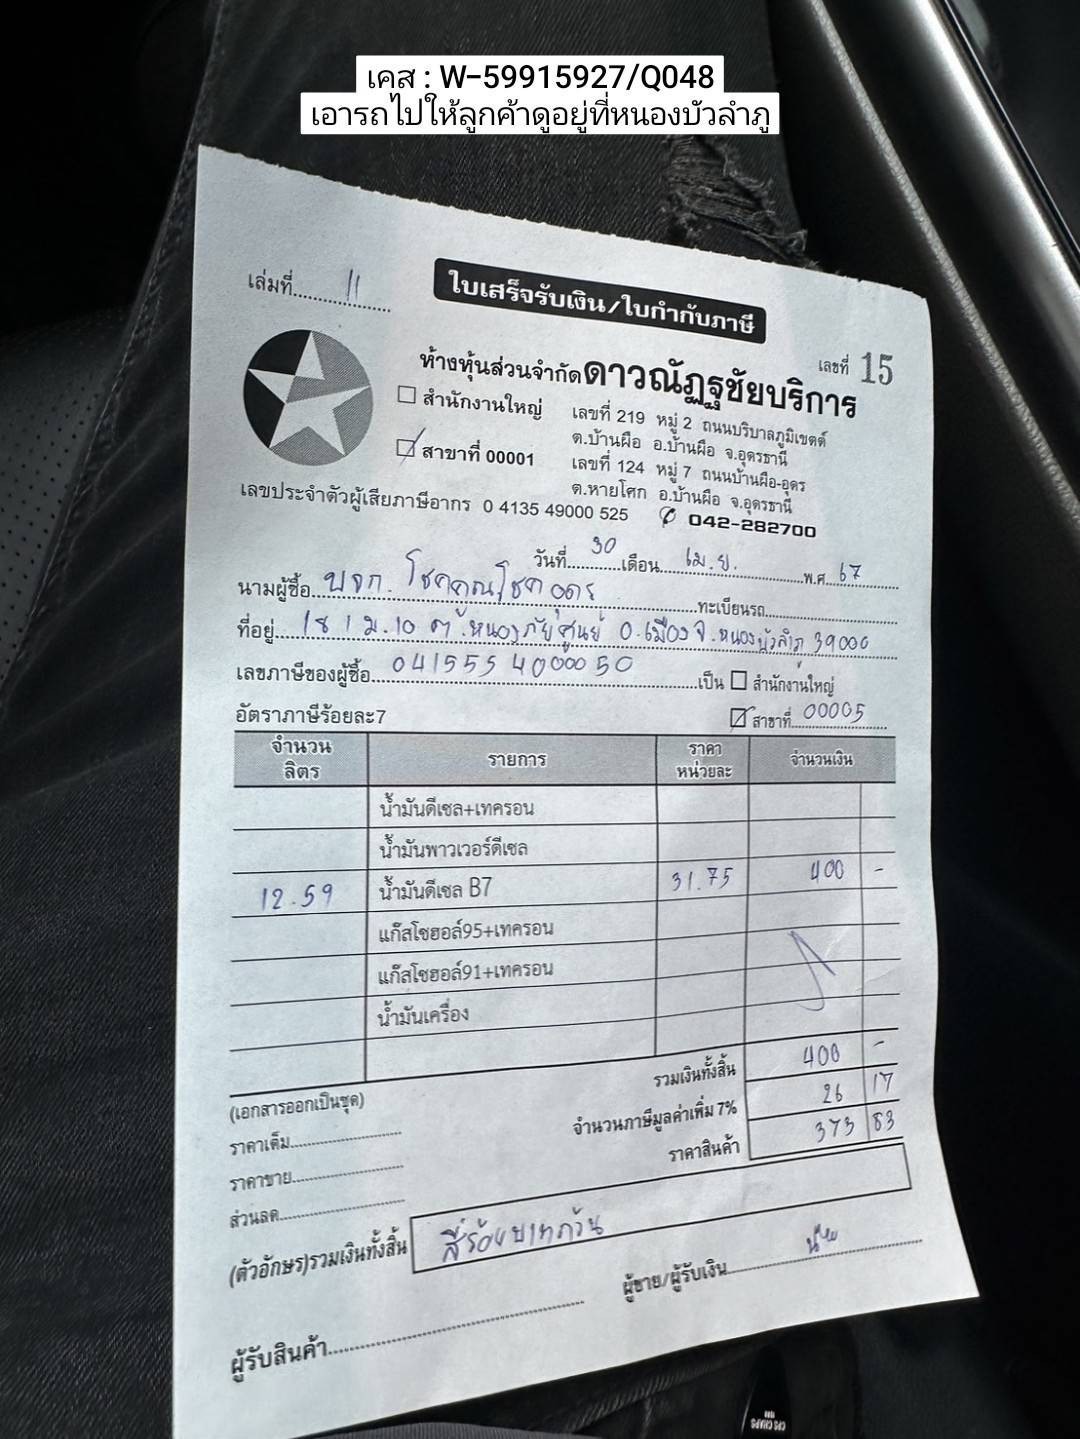 เคส : W-59915927/Q048
เอารถไปให้ลูกค้าดูอยู่ที่หนองบัวลำภู
เล่มที่ 11
ใบเสร็จรับเงิน/ใบกำกับภาษี
เลขที่ 15
ห้างหุ้นส่วนจำกัดดาวณัฏฐชัยบริการ
สำนักงานใหญ่ เลขที่ 219 หมู่ 2 ถนนบริบาลภูมิเขตต์
ต.บ้านผือ อ.บ้านผือ จ.อุดรธานี
สาขาที่ 00001 เลขที่ 124 หมู่ 7 ถนนบ้านผือ-อุดร
ต.หายโศก อ.บ้านผือ จ.อุดรธานี
เลขประจำตัวผู้เสียภาษีอากร 0 4135 49000 525 042-282700
วันที่ 30 เดือน เม.ย. พ.ศ. 67
นามผู้ซื้อ บจก. โชคคูณโชค อุดร ทะเบียนรถ
ที่อยู่ 181 ม.10 ต.หนองภัยศูนย์ อ.เมือง จ.หนองบัวลำภู 39000
เลขภาษีของผู้ซื้อ 0415554000050 เป็น สำนักงานใหญ่
อัตราภาษีร้อยละ7 สาขาที่ 00005
จำนวนลิตร รายการ ราคาหน่วยละ จำนวนเงิน
น้ำมันดีเซล+เทครอน
น้ำมันพาวเวอร์ดีเซล
12.59 น้ำมันดีเซล B7 31.75 400 -
แก๊สโซฮอล์95+เทครอน
แก๊สโซฮอล์91+เทครอน
น้ำมันเครื่อง
รวมเงินทั้งสิ้น 400 -
(เอกสารออกเป็นชุด)
จำนวนภาษีมูลค่าเพิ่ม 7% 26 17
ราคาเต็ม
ราคาสินค้า 373 83
ราคาขาย
ส่วนลด
(ตัวอักษร)รวมเงินทั้งสิ้น สี่ร้อยบาทถ้วน
ผู้ขาย/ผู้รับเงิน
ผู้รับสินค้า